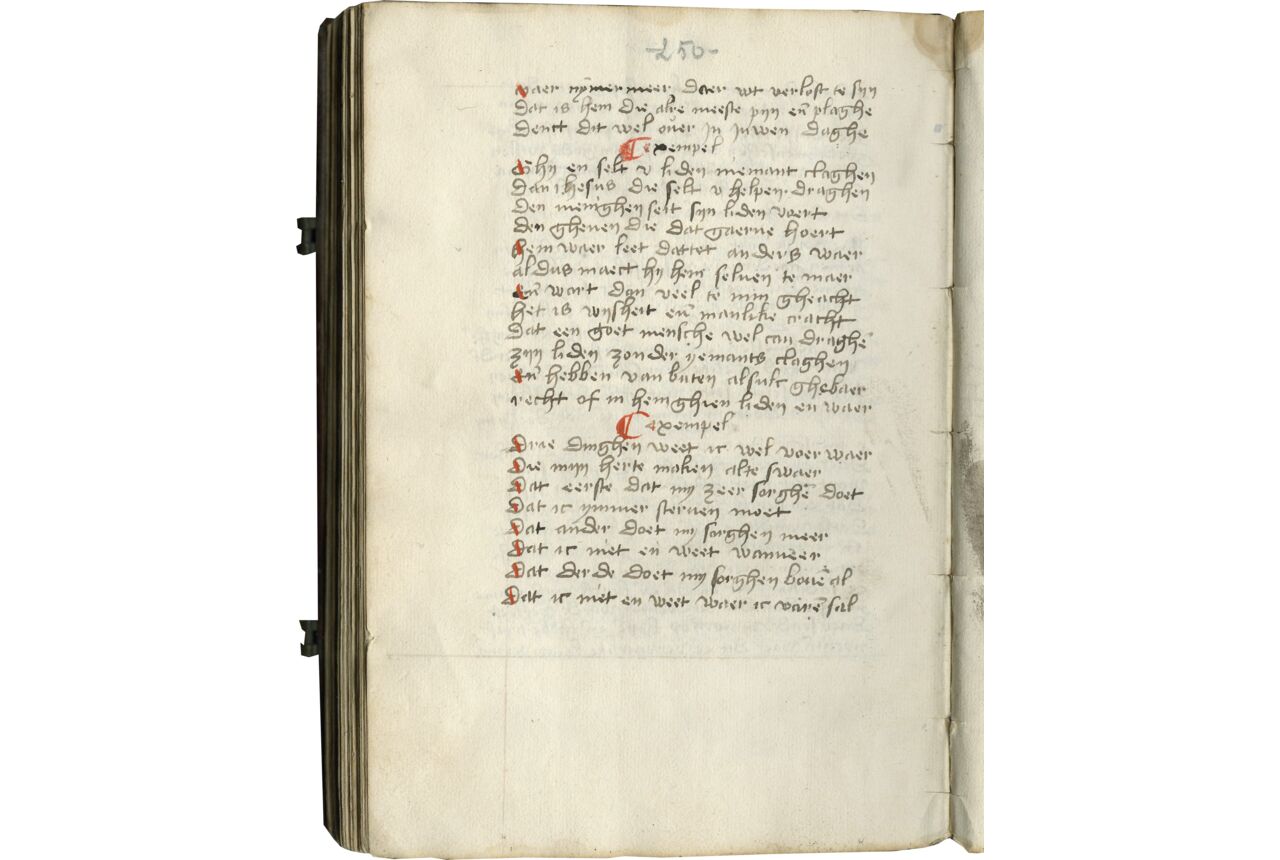 -250-
vaer nymmermeer daer wt verlost te sijn
dat is hem die alre meeste pijn eñ plaghe
denct dit wel ouer in juwen daghe
exempel
Ghy en selt v liden niemant claghen
dan ihesus die selt v helpen draghen
den menighen seit sijn liden voert
den ghenen die dat gaerne hoert
hem waer leet dattet anders waer
aldus maect hy hem seluen te maer
eñ wart dan veel te min gheacht
het is wijsheit eñ manlike cracht
dat een goet mensche wel can draghē
zijn liden zonder yemants claghen
eñ hebben van buten alsulc ghebaer
recht of in hem ghien liden en waer
exempel
Drie dinghen weet ic wel voer waer
die mijn herte maken alte swaer
Dat eerste dat my zeer sorghē doet
dat ic ymmer steruen moet
Dat ander doet my sorghen meer
dat ic niet en weet wanneer
Dat derde doet my sorghen bouē al
dat ic niet en weet waer ic varē sal